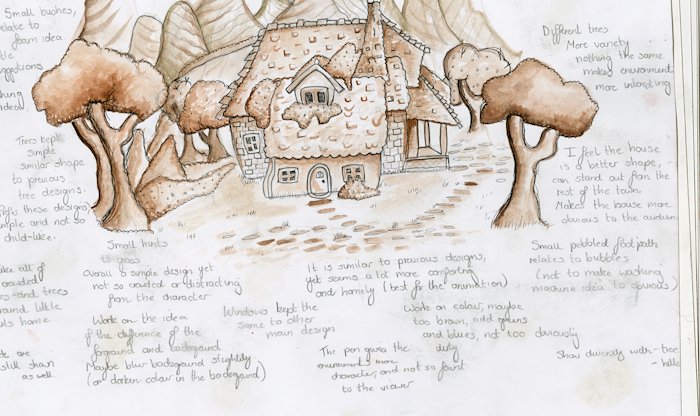 Small bushes,
relate to
foam idea
Trees kept
simple
similar shape
to previous
tree designs.
Keeps these designs
simple and not so
child-like.
Small hints
to grass
Overall a simple design yet
not so crowded or distracting
from the character
Work on the idea
of the difference of the
forground and background
Maybe blur background slightly
(or darken colour in the background)
all of
crowded
and trees
around little
home
are
still shown
as well.
Windows kept the
same to other
main design
It is similar to previous designs,
yet seems a lot more comforting
and homely (best for the animation)
The pen gives the
environment more
character, and not so faint
to the viewer
Work on colour, maybe
too brown, add greens
and blues, not too obviously
dirty
Different trees
More variety
nothing the same
makes environment
more interesting
I feel the house
is a better shape,
can stand out from the
rest of the town.
Makes the house more
obvious to the audience
Small pebbled footpath
relates to bubbles
(not to make washing
machine idea to obvious)
Show diversity with - tree
- hills